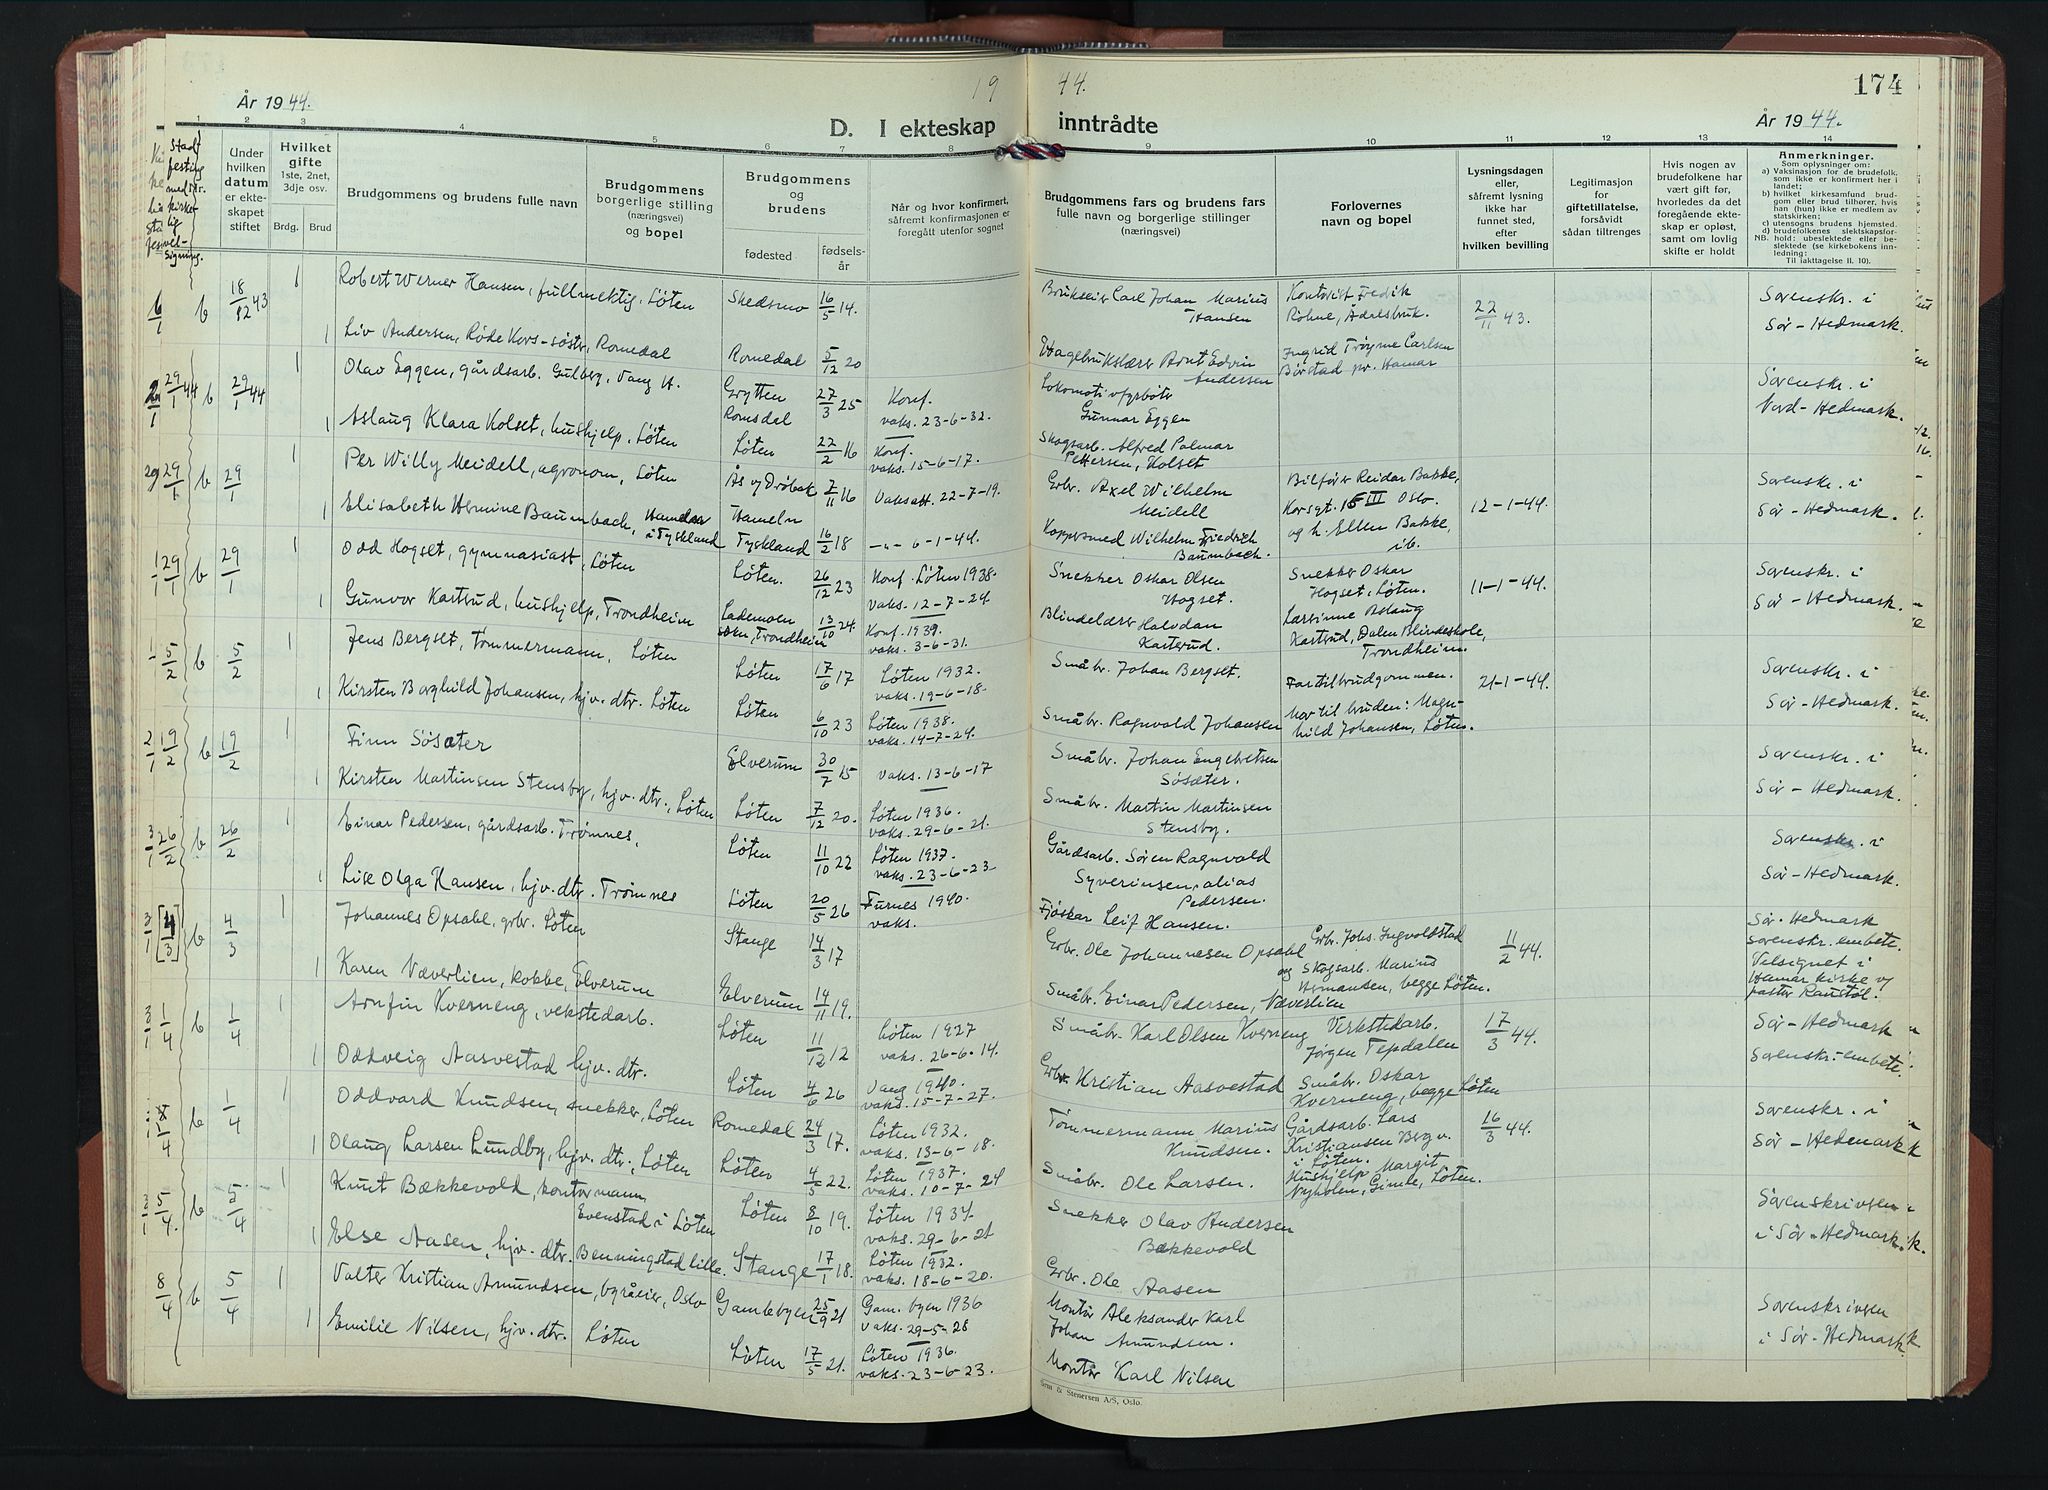 19 44.
174
År 1944.
D. I ekteskap inntrådte
År 1944.
1 2 3 4 5 6 7 8 9 10 11 12 13 14
Under hvilken datum er ekteskapet stiftet
Hvilket gifte 1ste, 2net, 3dje osv.
Brdg. Brud
Brudgommens og brudens fulle navn
Brudgommens borgerlige stilling (næringsvei) og bopel
Brudgommens og brudens
fødested
fødselsår
Når og hvor konfirmert, såfremt konfirmasjonen er foregått utenfor sognet
Brudgommens fars og brudens fars fulle navn og borgerlige stillinger (næringsvei)
Forlovernes navn og bopel
Lysningsdagen eller, såfremt lysning ikke har funnet sted, efter hvilken bevilling
Legitimasjon for giftetillatelse, forsåvidt sådan tiltrenges
Hvis nogen av brudefolkene har vært gift før, hvorledes da det foregående ekteskap er opløst, samt om lovlig skifte er holdt
Anmerkninger.
Som oplysninger om:
a) Vaksinasjon for de brudefolk, som ikke er konfirmert her i landet;
b) hvilket kirkesamfund brudgom eller brud tilhører, hvis han (hun) ikke er medlem av statskirken;
c) utensogns brudens hjemsted.
d) brudefolkenes slektskapsforhold: ubeslektede eller beslektede (se kirkebokens innledning:
NB.
Til iakttagelse II. 10).
6/1 b 18/12 43 1 Robert Werner Hansen, fullmektig, Løten Skedsmo 16/5 14. Brukseier Carl Johan Marius Hansen Kontorist Fredrik Röhne, Ådalsbruk. 22/11 43. Sorenskr. i Sør-Hedmark.
1 Liv Andersen, Røde Kors-søster, Romedal Romedal 5/12 20 Hagebrukslærer Arnt Edvin Andersen Ingrid Trøyme Carlsen Børstad pr. Hamar
29/1 44 b 29/1 44 1 Olav Eggen, gårdsarb. Gulberg, Vang H. Grytten Romsdal 27/3 25 Konf. vaks. 23-6-32. Lokomotivfyrbøter Gunnar Eggen Sorenskr. i Nord-Hedmark.
1 Aslaug Klara Kolset, hushjelp, Løten Løten 22/2 16 Konf. vaks. 15-6-17. Skogsarb. Alfred Palmar Pettersen, Kolset
29/1 b 29/1 1 Per Willy Meidell, agronom, Løten Ås og Drøbak 7/11 16 Vaks. att. 22-7-19. Grbr. Axel Wilhelm Meidell Bilfører Reidar Bakke, Korsgt. 15 III Oslo. 12-1-44. Sorenskr. i Sør-Hedmark.
1 Elisabeth Hermine Baumbach, Hameln i Tyskland Hameln Tyskland 16/2 18 -"- 6-1-44. Koppersmed Wilhelm Friedrich Baumbach. og h. Ellen Bakke, ib.
1/1 29/1 b 29/1 1 Odd Hogset, gymnasiast, Løten Løten. 26/12 23 Konf. Løten 1938. vaks. 12-7-24. Snekker Oskar Olsen Hogset. Snekker Oskar Hogset, Løten. 11-1-44. Sorenskr. i Sør-Hedmark.
1 Gunvor Kastrud, hushjelp, Trondheim Lademoen sokn, Trondheim 13/10 24. Konf. 1939. vaks. 3-6-31. Blindelærer Halvdan Kastrud. Larsinne Aslaug Kastrud, Dalen Blindeskole, Trondheim.
5/2 b 5/2 1 Jens Bergset, tømmermann, Løten Løten 17/6 17 Løten 1932. vaks. 19-6-18. Småbr. Johan Bergset. Far til brudgommen. 21-1-44. Sorenskr. i Sør-Hedmark.
1 Kirsten Borghild Johansen, hjv. dtr. Løten Løten 6/10 23 Løten 1938. vaks. 14-7-24. Småbr. Ragnvald Johansen Mor til bruden: Magnhild Johansen, Løten.
2/1 19/2 b 19/2 1 Finn Søsæter Elverum 30/7 15 Vaks. 13-6-17 Småbr. Johan Engebretsen Søsæter. Sorenskr. i Sør-Hedmark.
1 Kirsten Martinsen Stensby, hjv. dtr., Løten Løten 7/12 20. Løten 1936. vaks. 29-6-21. Småbr. Martin Martinsen Stensby.
3/1 26/2 b 26/2 1 Einar Pedersen, gårdsarb. Trømnes, Løten 11/10 22 Løten 1937. vaks. 23-6-23 Gårdsarb. Søren Ragnvald Syverinsen, alias Pedersen. Sorenskr. i Sør-Hedmark.
1 Lise Olga Hansen, hjv. dtr. Trømnes Løten 20/5 26 Furnes 1940. vaks. Fjøskar Leif Hansen.
3/1 [4/3] b 4/3 1 Johannes Opsahl, grbr. Løten Stange 14/3 17 Grbr. Ole Johannesen Opsahl Grbr. Johs. Ingvoldstad og Skogsarb. Marius Hermansen, begge Løten. 11/2 44. Sør-Hedmark sorenskr. embete. Velsignet i Hamar kirke v/ pastor Raustøl.
1 Karen Næverlien, kokke, Elverum Elverum 14/11 19. Småbr. Einar Pedersen, Næverlien
3/1 1/4 b 1/4 1 Arnfin Kverneng, verkstedarb. Løten 11/12 12 Løten 1927 vaks. 26-6-14. Småbr. Karl Olsen Kverneng Verkstedarb. Jørgen Tepdalen 17/3 44. Sør-Hedmark Sorenskr.-embete.
1 Oddveig Aasvestad hjv. dtr. Løten 4/6 26 Vang 1940. vaks. 15-7-27. Grbr. Kristian Aasvestad Småbr. Oskar Kverneng, begge Løten
1/4 b 1/4 1 Oddvard Knudsen, snekker, Løten Romedal 24/3 17. Løten 1932. vaks. 13-6-18. Tømmermann Marius Knudsen. Gårdsarb. Lars Kristiansen Berg v. i Løten. 16/3 44. Sorenskr. i Sør-Hedmark
1 Olaug Larsen Lundby, hjv. dtr., Løten Løten 4/5 22. Løten 1937. vaks. 10-7-24 Småbr. Ole Larsen. Hushjelp Margit Nyholen, Gimle, Løten.
3/1 5/4. b 5/4 1 Knut Bækkevold, kontormann Evenstad i Løten Løten 8/10 19. Løten 1934. vaks. 29-6-21 Snekker Olav Andersen Bækkevold Sorenskriveren i Sør-Hedmark.
1 Else Aasen, hjv. dtr. Benningstad lille. Stange 17/1 18. Løten 1932. vaks. 18-6-20. Grbr. Ole Aasen
8/4 b 5/4 1 Valter Kristian Amundsen, byråeier, Oslo Gamlebyen 25/9 21 Gam. byen 1936 vaks. 29-5-28 Montør Aleksander Karl Johan Amundsen. Sorenskriveren i Sør-Hedmark
1 Emilie Nilsen, hjv. dtr. Løten Løten 17/5 21. Løten 1936. vaks. 23-6-23. Montør Karl Nilsen
Grøn & Stenersen A/S, Oslo.